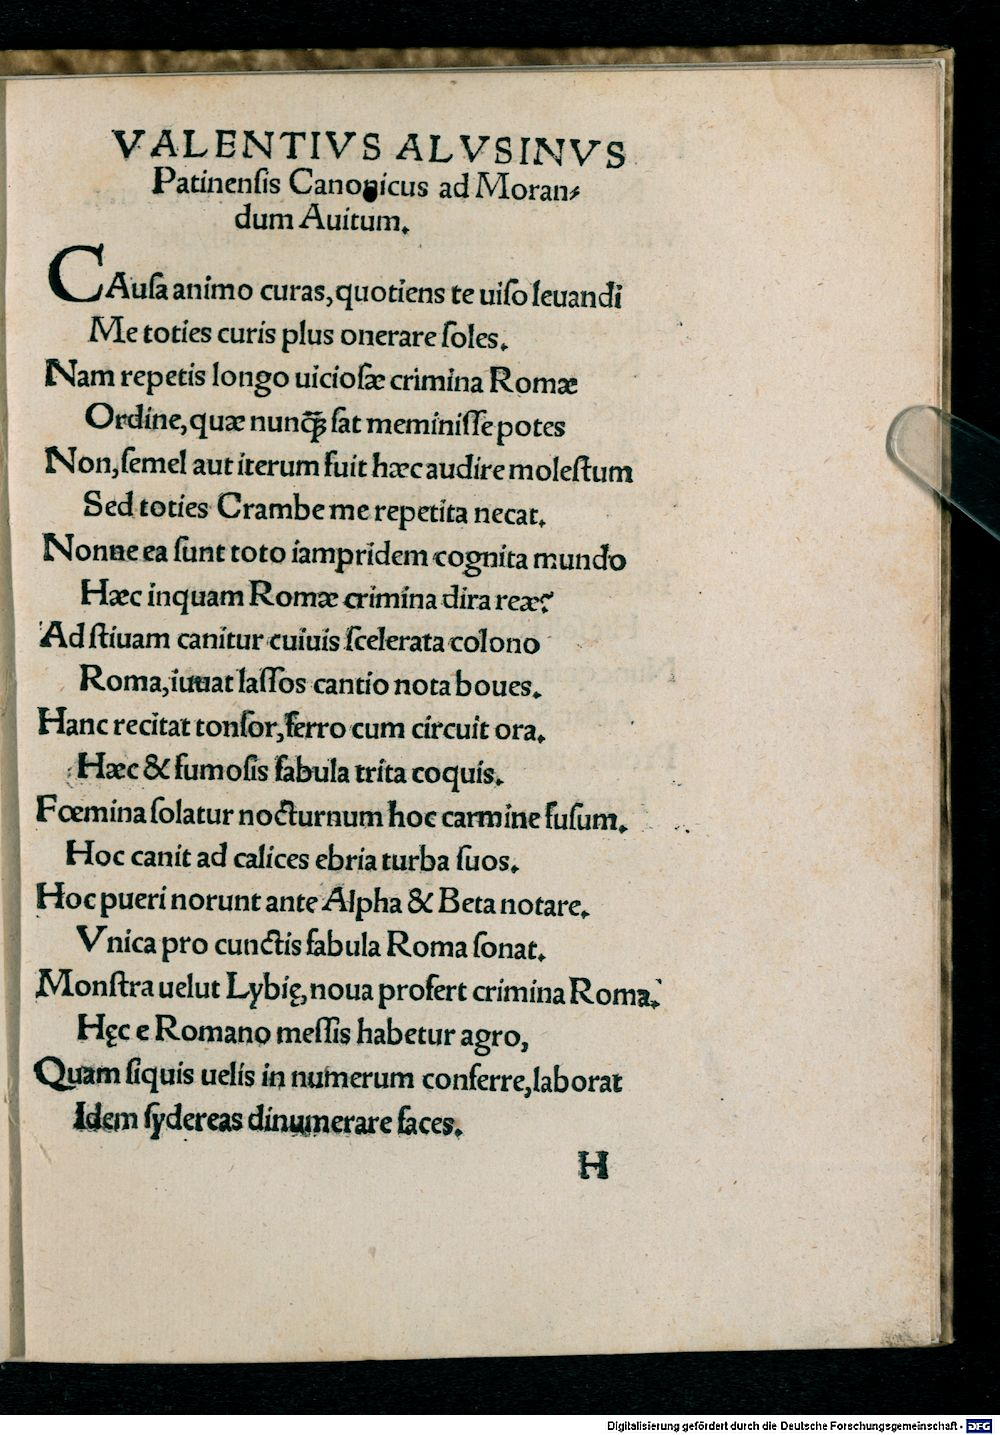 VALENTIVS ALVSINVS
Patinensis Canonicus ad Moran⸗
dum Auitum.
CAuſa animo curas, quotiens te uiſo leuandi
Me toties curis plus onerare ſoles.
Nam repetis longo uicioſæ crimina Romæ
Ordine, quæ nunq̃ꝫ ſat meminiſſe potes
Non, ſemel aut iterum fuit hæc audire moleſtum
Sed toties Crambe me repetita necat.
Nonne ea ſunt toto iampridem cognita mundo
Hæc inquam Romæ crimina dira reæ?
Ad ſtiuam canitur cuiuis ſcelerata colono
Roma, iuuat laſſos cantio nota boues.
Hanc recitat tonſor, ferro cum circuit ora.
Hæc & fumoſis fabula trita coquis.
Fœmina ſolatur nocturnum hoc carmine fuſum.
Hoc canit ad calices ebria turba ſuos.
Hoc pueri norunt ante Alpha & Beta notare.
Vnica pro cunctis fabula Roma ſonat.
Monſtra uelut Lybię, noua profert crimina Roma.
Hęc e Romano meſſis habetur agro,
Quam ſiquis uelis in numerum conferre, laborat
Idem ſydereas dinumerare faces.
H
Digitalisierung gefördert durch die Deutsche Forschungsgemeinschaft - DFG